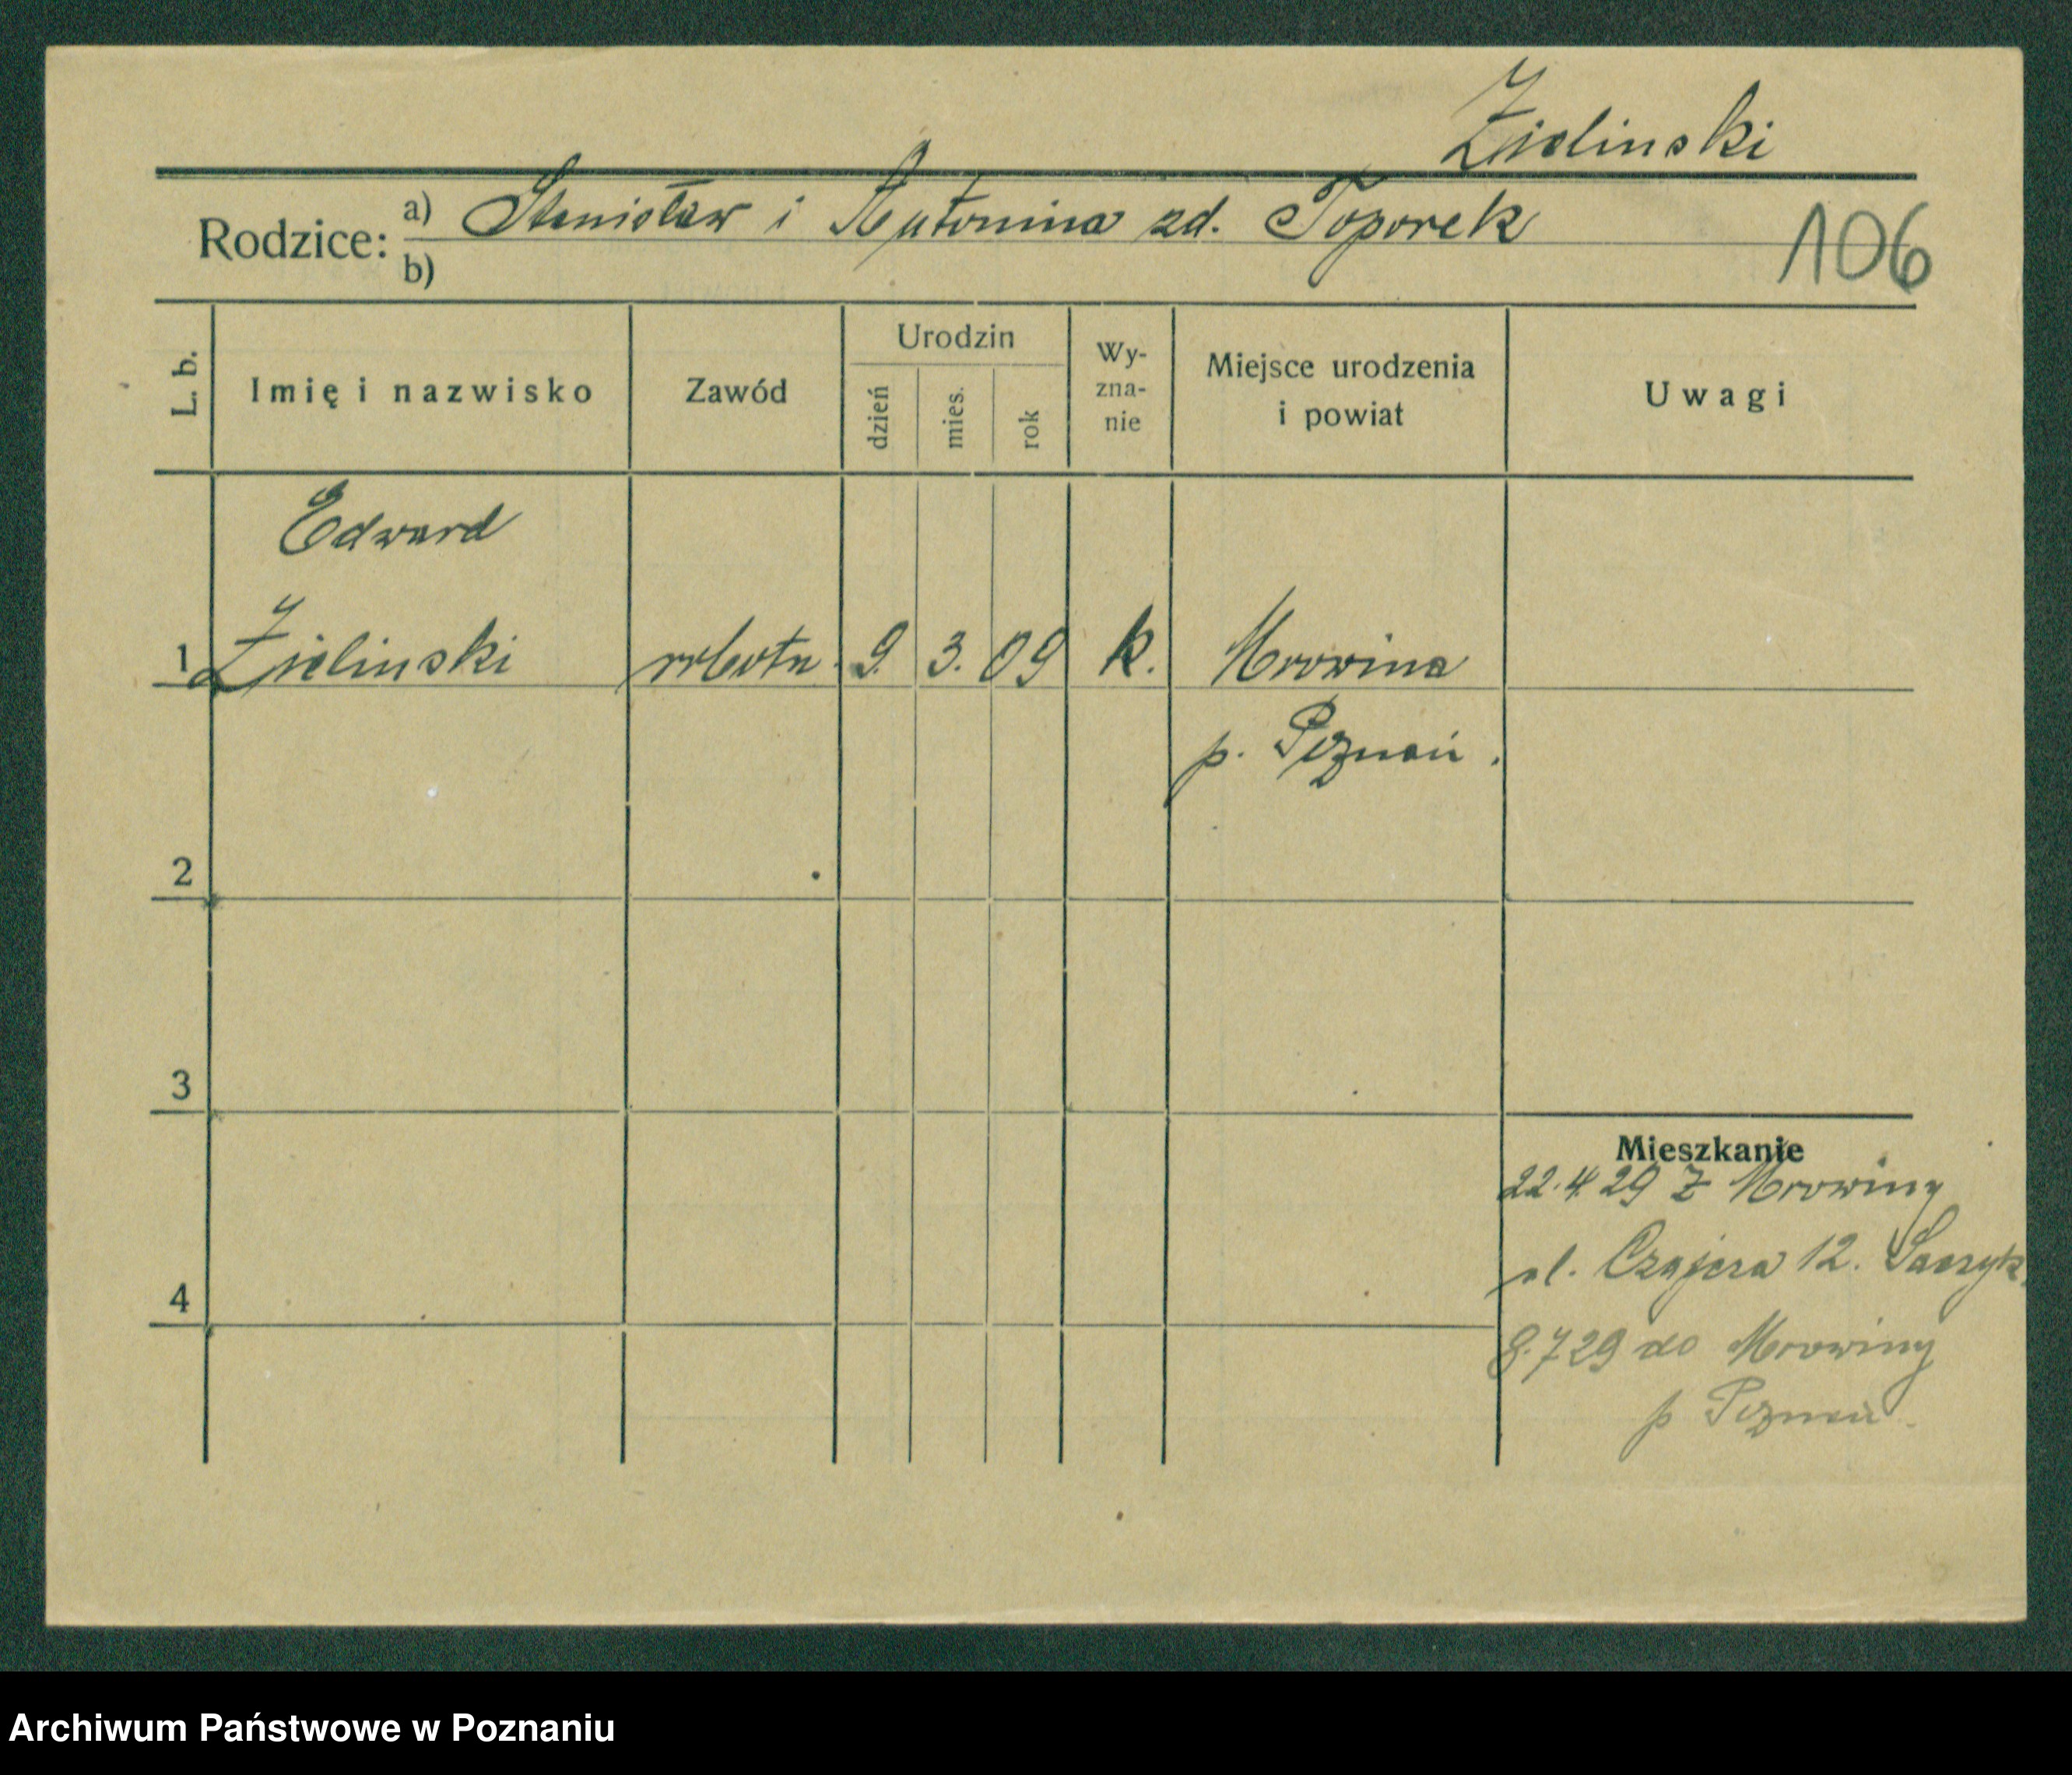 Zielinski
Rodzice: a) Stanisław i Antonina zd. Toporek
b)
106
L. b. Imię i nazwisko Zawód Urodzin dzień mies. rok Wy-zna-nie Miejsce urodzenia i powiat Uwagi
Edward
1 Zielinski robotn. 9. 3. 09 k. Mrowina
p. Poznań.
2
3
Mieszkanie
22.4.29 z Mrowiny
ul. 12.
4
8.7 29 do Mrowiny
p Poznań.
Archiwum Państwowe w Poznaniu